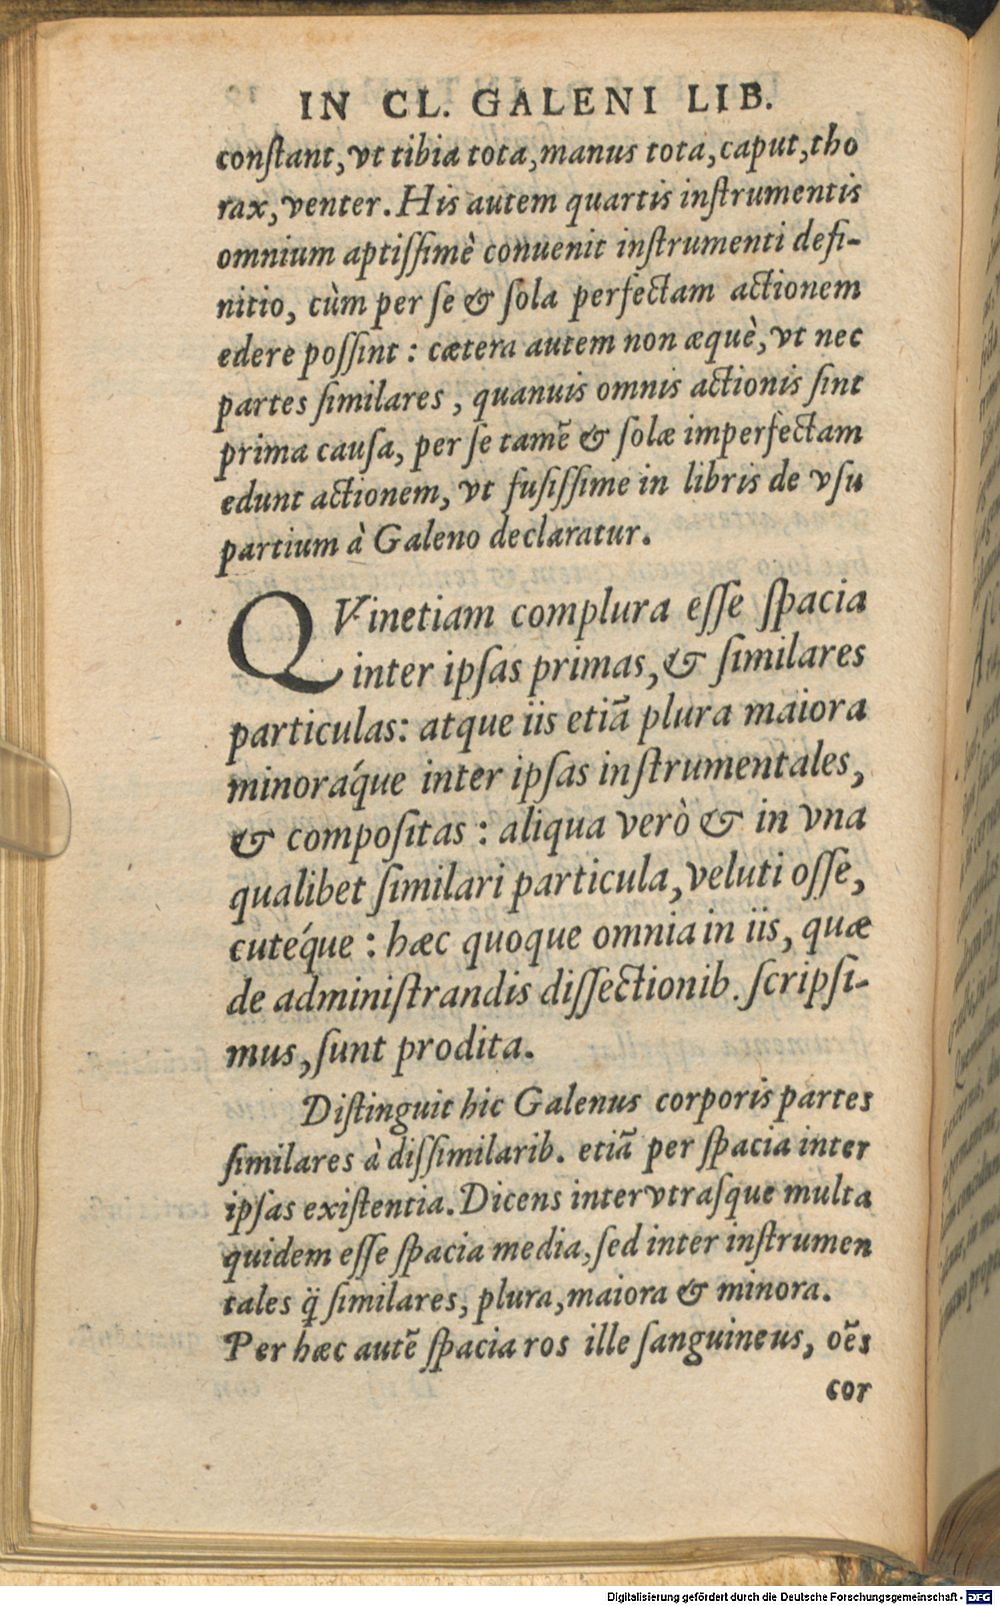 IN CL. GALENI LIB.
conſtant, vt tibia tota, manus tota, caput, tho
rax, venter. His autem quartis inſtrumentis
omnium aptiſſimè conuenit inſtrumenti defi-
nitio, cùm per ſe & ſola perfectam actionem
edere poſſint : cætera autem non æquè, vt nec
partes ſimilares, quanuis omnis actionis ſint
prima cauſa, per ſe tamẽ & ſolæ imperfectam
edunt actionem, vt fuſiſſime in libris de vſu
partium à Galeno declaratur.
QVinetiam complura eſſe ſpacia
inter ipſas primas, & ſimilares
particulas: atque iis etiã plura maiora
minoráque inter ipſas inſtrumentales,
& compoſitas : aliqua verò & in vna
qualibet ſimilari particula, veluti oſſe,
cutéque : hæc quoque omnia in iis, quæ
de adminiſtrandis diſſectionib. ſcripſi-
mus, ſunt prodita.
Diſtinguit hic Galenus corporis partes
ſimilares à diſſimilarib. etiã per ſpacia inter
ipſas exiſtentia. Dicens inter vtraſque multa
quidem eſſe ſpacia media, ſed inter inſtrumen
tales q̃ ſimilares, plura, maiora & minora.
Per hæc autẽ ſpacia ros ille ſanguineus, oẽs
cor
Digitalisierung gefördert durch die Deutsche Forschungsgemeinschaft - DFG